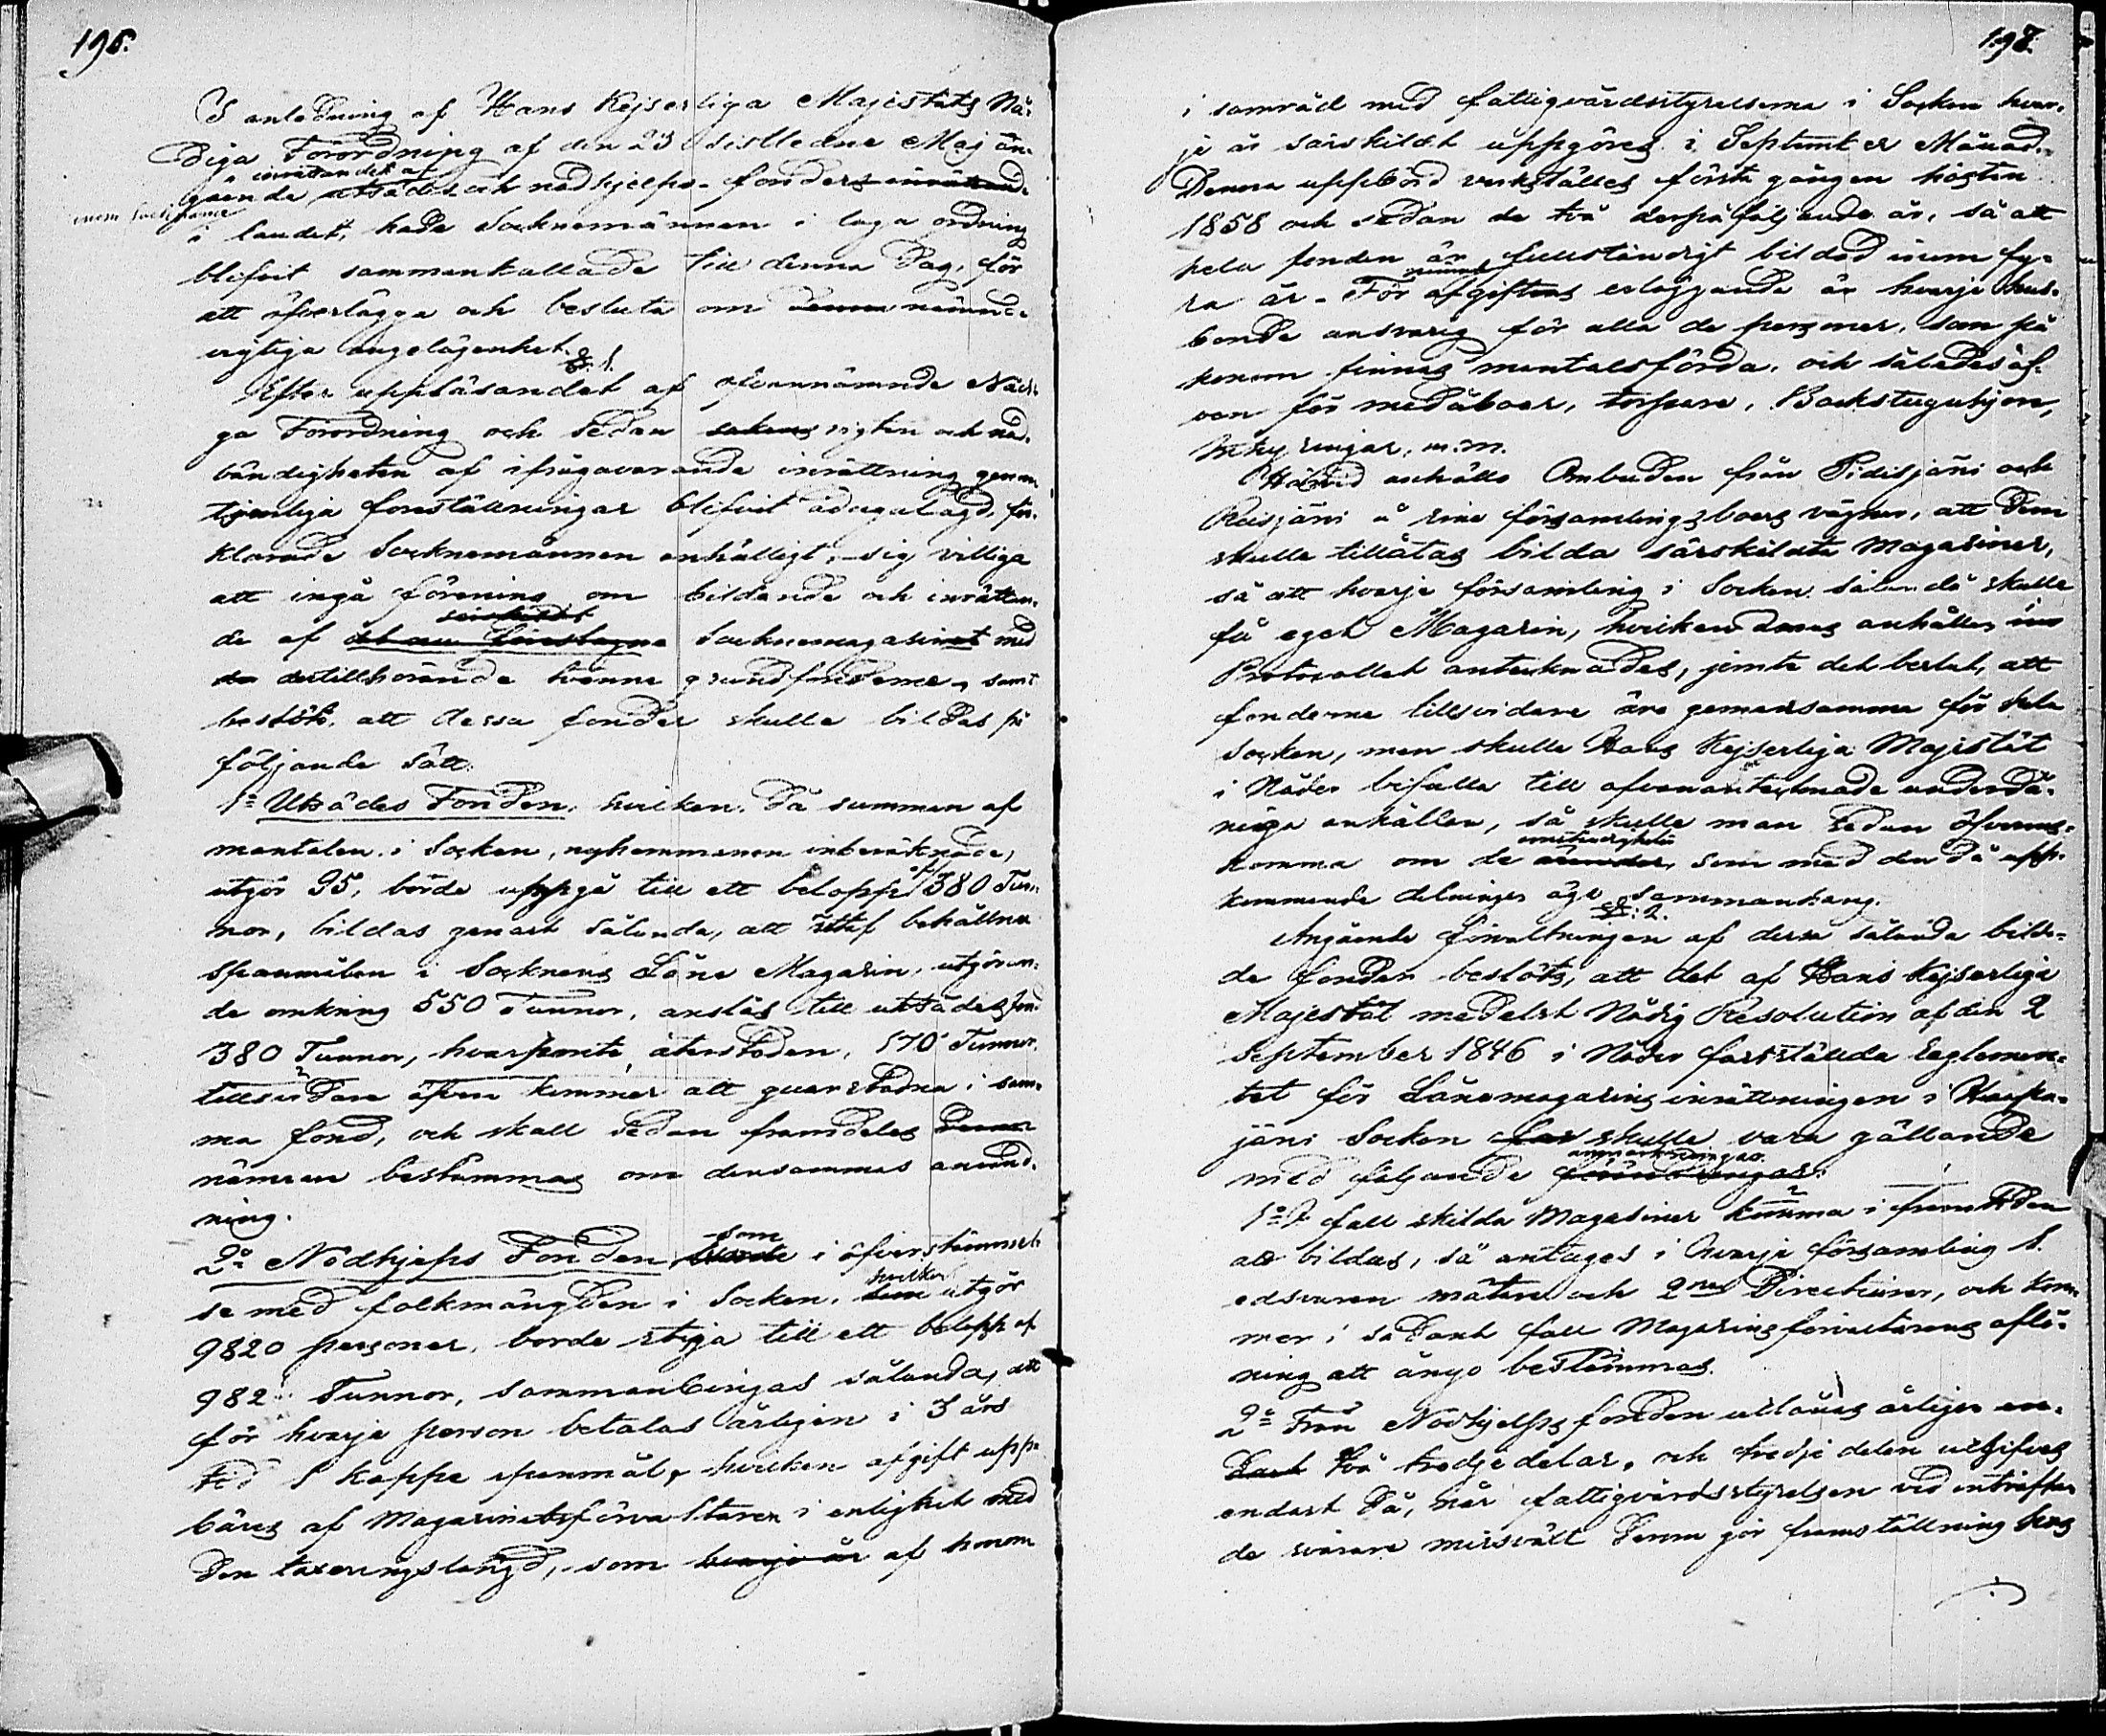 196.
I anledning af Hans Kejserliga Majestäts Nå-
diga Förordning af den 23 sistledne Maj än-
inrättandet af
gående utsädes och nödhjelps-fonders inrättande
inom Socknarne
i landet, hade Socknemännen i laga ordning
blifvit sammankallade till denna dag, för
att öfverlägga och besluta om denna nämnde
vigtiga angelägenhet.
§. 1.
Efter uppläsandet af ofvannämnde Nådi-
ga Förordning och sedan sakens vigten och nöd-
vändigheten af ifrågavarande inrättning genom
tjenliga föreställningar blifvit ådagalagd, för-
klarade Socknemännen enhälligt, sig villiga
att ingå förening om bildande och inrättan-
särskildt
de af Socknemagasinet med
de dertillhörande tvenne grundfonderne, samt
beslöts, att dessa fonder skulle bildas på
följande sätt.
1:o Utsädes Fonden, hvilken, då summan af
mantalen i Socken, nyhemmanen inberäknade,
utgör 95, borde uppgå till ett belopp af 380 Tun-
nor, bildas genast sålunda, att utaf behållna
spanmålen i Socknens Låne Magasin, utgöran-
de omkring 550 Tunnor, anslås till utsädesfond
380 Tunnor, hvarjemte återstoden, 170 Tunnor,
tillsvidare äfven kommer att qvarstadna i sam-
ma fond, och skall sedan framdeles
närmare bestämmas om densammas använd-
ning.
2:o Nödhjelps Fonden, som borde i öfverstämmel-
hvilken
se med folkmängden i Socken, som utgör
9820 personer, borde stiga till ett belopp af
982 Tunnor, sammanbringas sålunda, att
för hvarje person betalas årligen i 3 års
tid 1 kappe spanmål, hvilken afgift upp-
bäres af Magasinetsförvaltaren i enlighet med
den taxeringslängd, som hvarje år af honom
197.
i samråd med fattigvårdsstyrelserna i Socken hvar-
je år särskildt uppgöres i September Månad.
Denna uppbörd verkställes första gången hösten
1858 och sedan de två derpåföljande år, så att
hela fonden är fullständigt bildad inom fy-
nämnde
ra år. För afgiftens erläggande är hvarje hus-
bonde ansvarig för alla de personer, som på
honom finnas mantalsförda, och således äf-
ven för medåboer, torpare, Backstuguhjon,
Inhyrningar, m.m.
Härvid anhöllo Ombuden från Pidisjärvi och
Reisjärvi å sine församlingsboers vägnar, att dem
skulle tillåtas bilda särskildta Magasiner,
så att hvarje församling i Socken sålunda skulle
få eget Magasin, hvilken deras anhållan in
Protocollet antecknades, jemte det beslut, att
fonderne tillsvidare äro gemensamma för hela
Socken, men skulle Hans Kejserliga Majestät
i Nåder bifalla till ofvanantecknade underdå-
niga anhållan, så skulle man sedan öfverens-
omständigheter
komma om de ärender, som med den då upp-
kommande delningen äga sammanhang.
§: 2.
Angående förvaltningen af dessa sålunda bilda-
de fonder beslöts, att det af Hans Kejserliga
Majestät medelst Nådig Resolution af den 2
September 1846 i Nåder fastställda Reglemen-
tet för Lånemagasinsinrättningen i Haapa-
järvi Socken skulle vara gällande
anmärkningar.
med följande förändringar:
1:o I fall skilda Magasiner kunna i framtiden
att bildas, så antages i hvarje församling 1.
edsvuren mätare och 2:ne Directeurer, och kom-
mer i sådant fall Magasinsförvaltarens aflö-
ning att ånyo bestämmas.
2:o Från Nödhjelpsfonden utlånas årligen en-
dast två tredjedelar, och tredje delen utgifves
endast då, när fattigvårdsstyrelsen vid inträffan-
de svårare missväxt derom gör framställning hos